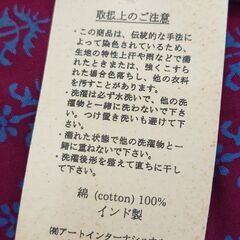 取扱上のご注意
・この商品は、伝統的な手法に
よって染色されているため、
生地の特性上汗や雨などで濡
れたときまたは、強くこすら
れた場合色落ちし、他の衣料
を汚すことがあります。
・洗濯は必ず水洗いで、他の洗
濯物と一緒に洗わないで下さ
い。つけ置き洗いも避けて下
さい。
・濡れた状態で他の洗濯物と一
緒に重ねないで下さい。
・洗濯後形を整えて直ちに干し
て下さい。
綿 (cotton) 100%
インド製
㈲アートインターナショナル